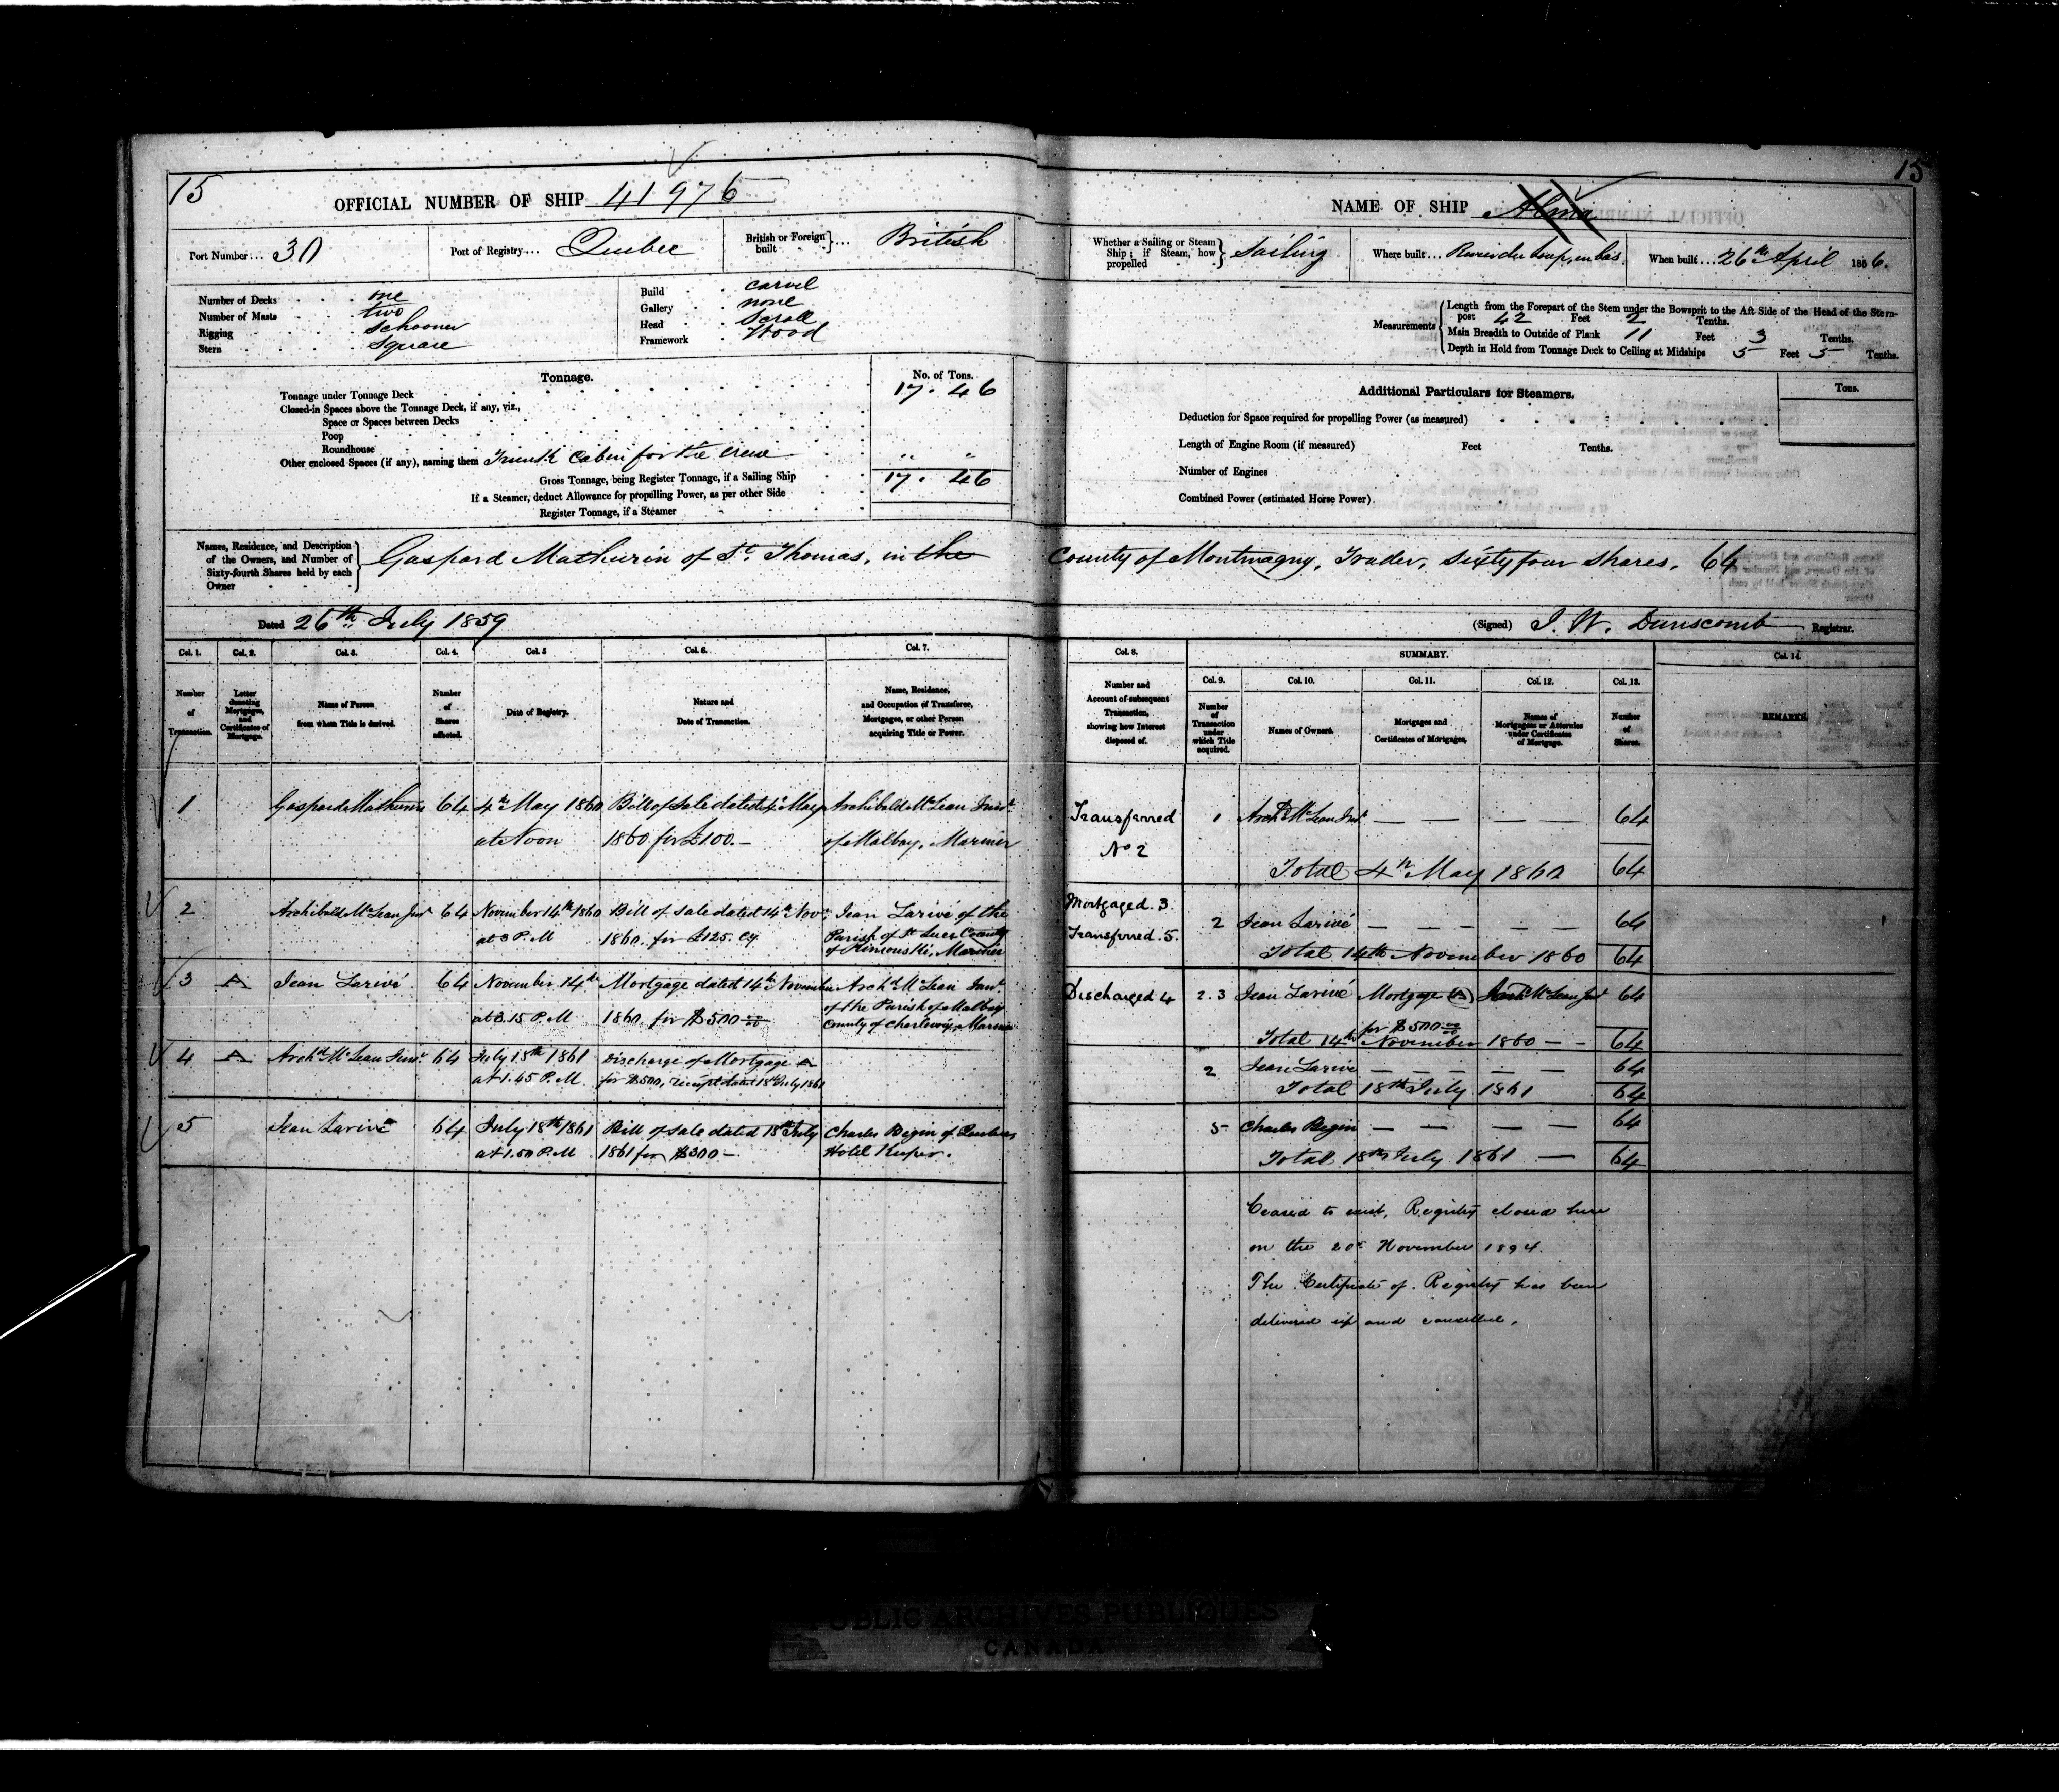 15
OFFICIAL NUMBER OF SHIP 41976
Port Number... 30
Port of Registry.... Quebec
British or Foreign built ... British
Number of Decks one
Number of Masts two
Rigging Schooner
Stern Square
Build carvel
Gallery none
Head Scroll
Framework Wood
Tonnage.
No. of Tons.
Tonnage under Tonnage Deck 17. 46
Closed-in Spaces above the Tonnage Deck, if any, viz.,
Space or Spaces between Decks
Poop
Roundhouse
Other enclosed Spaces (if any), naming them Trunk Cabin for the Crew " "
Gross Tonnage, being Register Tonnage, if a Sailing Ship 17. 46
If a Steamer, deduct Allowance for propelling Power, as per other Side
Register Tonnage, if a Steamer
Names, Residence, and Description
of the Owners, and Number of
Sixty-fourth Shares held by each
Owner
Gaspard Mathurin of St. Thomas, in the
Dated 26th July 1859
Col. 1. Col. 2. Col. 3. Col. 4. Col. 5 Col. 6. Col. 7.
Number of Transaction.
Letter denoting Mortgages, and Certificates of Mortgage.
Name of Person from whom Title is derived.
Number of Shares affected.
Date of Registry.
Nature and Date of Transaction.
Name, Residence, and Occupation of Transferee, Mortgagee, or other Person acquiring Title or Power.
1 Gaspard Mathurin 64 4th May 1860 Bill of Sale dated 4th May Archibald McLean Junr.
at Noon 1860 for £100.— of Malbay, Mariner
2 Archibald McLean Junr 64 November 14th 1860 Bill of Sale dated 14th Novr. Jean Larivé of the
at 3 P.M 1860. for £125. Cy Parish of St Luce County
of Rimouski, Mariner
3 A Jean Larivé 64 November 14th Mortgage dated 14th November Archd McLean Junr.
at 3.15 P.M 1860. for $500 of the Parish of Malbay
County of Charlevoix, Mariner
4 A Archd McLean Junr. 64 July 18th 1861 Discharge of Mortgage A
at 1.45 P.M for $500, receipt dated 18th July 1861
5 Jean Larivé 64 July 18th 1861 Bill of Sale dated 18th July Charles Begin of Quebec
at 1.50 P.M 1861 for $300— Hotel Keeper.
15
NAME OF SHIP Alma
Whether a Sailing or Steam
Ship; if Steam, how
propelled
Sailing
Where built... Riviere du Loup, en bas.
When built... 26th April 1856.
Measurements
Length from the Forepart of the Stem under the Bowsprit to the Aft Side of the Head of the Stern-
post 42 Feet 2 Tenths.
Main Breadth to Outside of Plank 11 Feet 3 Tenths.
Depth in Hold from Tonnage Deck to Ceiling at Midships 5 Feet 5 Tenths.
Additional Particulars for Steamers.
Tons.
Deduction for Space required for propelling Power (as measured)
Length of Engine Room (if measured) Feet Tenths.
Number of Engines
Combined Power (estimated Horse Power)
County of Montmagny, Trader, Sixty four Shares, 64
(Signed) J. W. Dunscomb Registrar.
Col. 8. SUMMARY. Col. 14.
Col. 9. Col. 10. Col. 11. Col. 12. Col. 13.
Number and Account of subsequent Transaction, showing how Interest disposed of.
Number of Transaction under which Title acquired.
Names of Owners.
Mortgages and Certificates of Mortgages.
Names of Mortgagees or Attornies under Certificates of Mortgage.
Number of Shares.
REMARKS.
Transferred 1 Archd McLean Junr — — — — 64
No 2
Total 4th May 1860 64
Mortgaged. 3.
Transferred. 5. 2 Jean Larivé — — — — — 64
Total 14th November 1860 64
Discharged 4 2.3 Jean Larivé Mortgage (A) Archd McLean Junr 64
for $500
Total 14th November 1860 — - 64
2 Jean Larivé — — — — — 64
Total 18th July 1861 64
5 Charles Begin — — — — 64
Total 18th July 1861 — 64
Ceased to exist, Registry closed here
on the 20th November 1894.
The Certificate of Registry has been
delivered up and cancelled.
PUBLIC ARCHIVES PUBLIQUES
CANADA